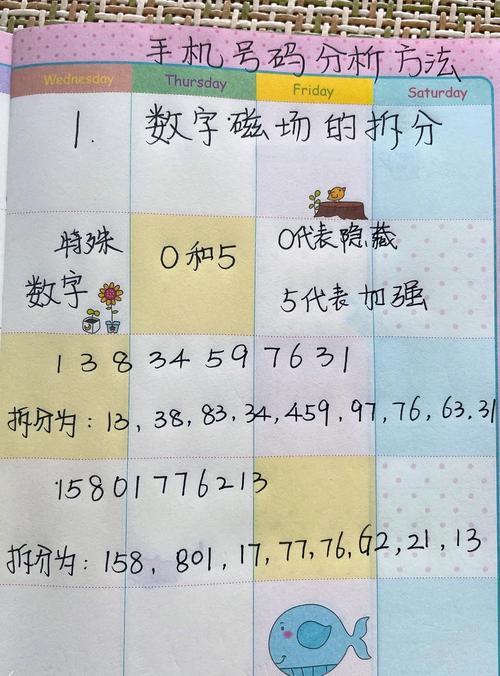 手机号码分析方法
Wednesday Thursday Friday Saturday
1. 数字磁场的拆分
特殊数字 0和5 0代表隐藏
5代表加强
13834597631
拆分为：13，38，83，34，459，97，76，63，31
15801776213
拆分为：158，801，17，77，76，62，21，13